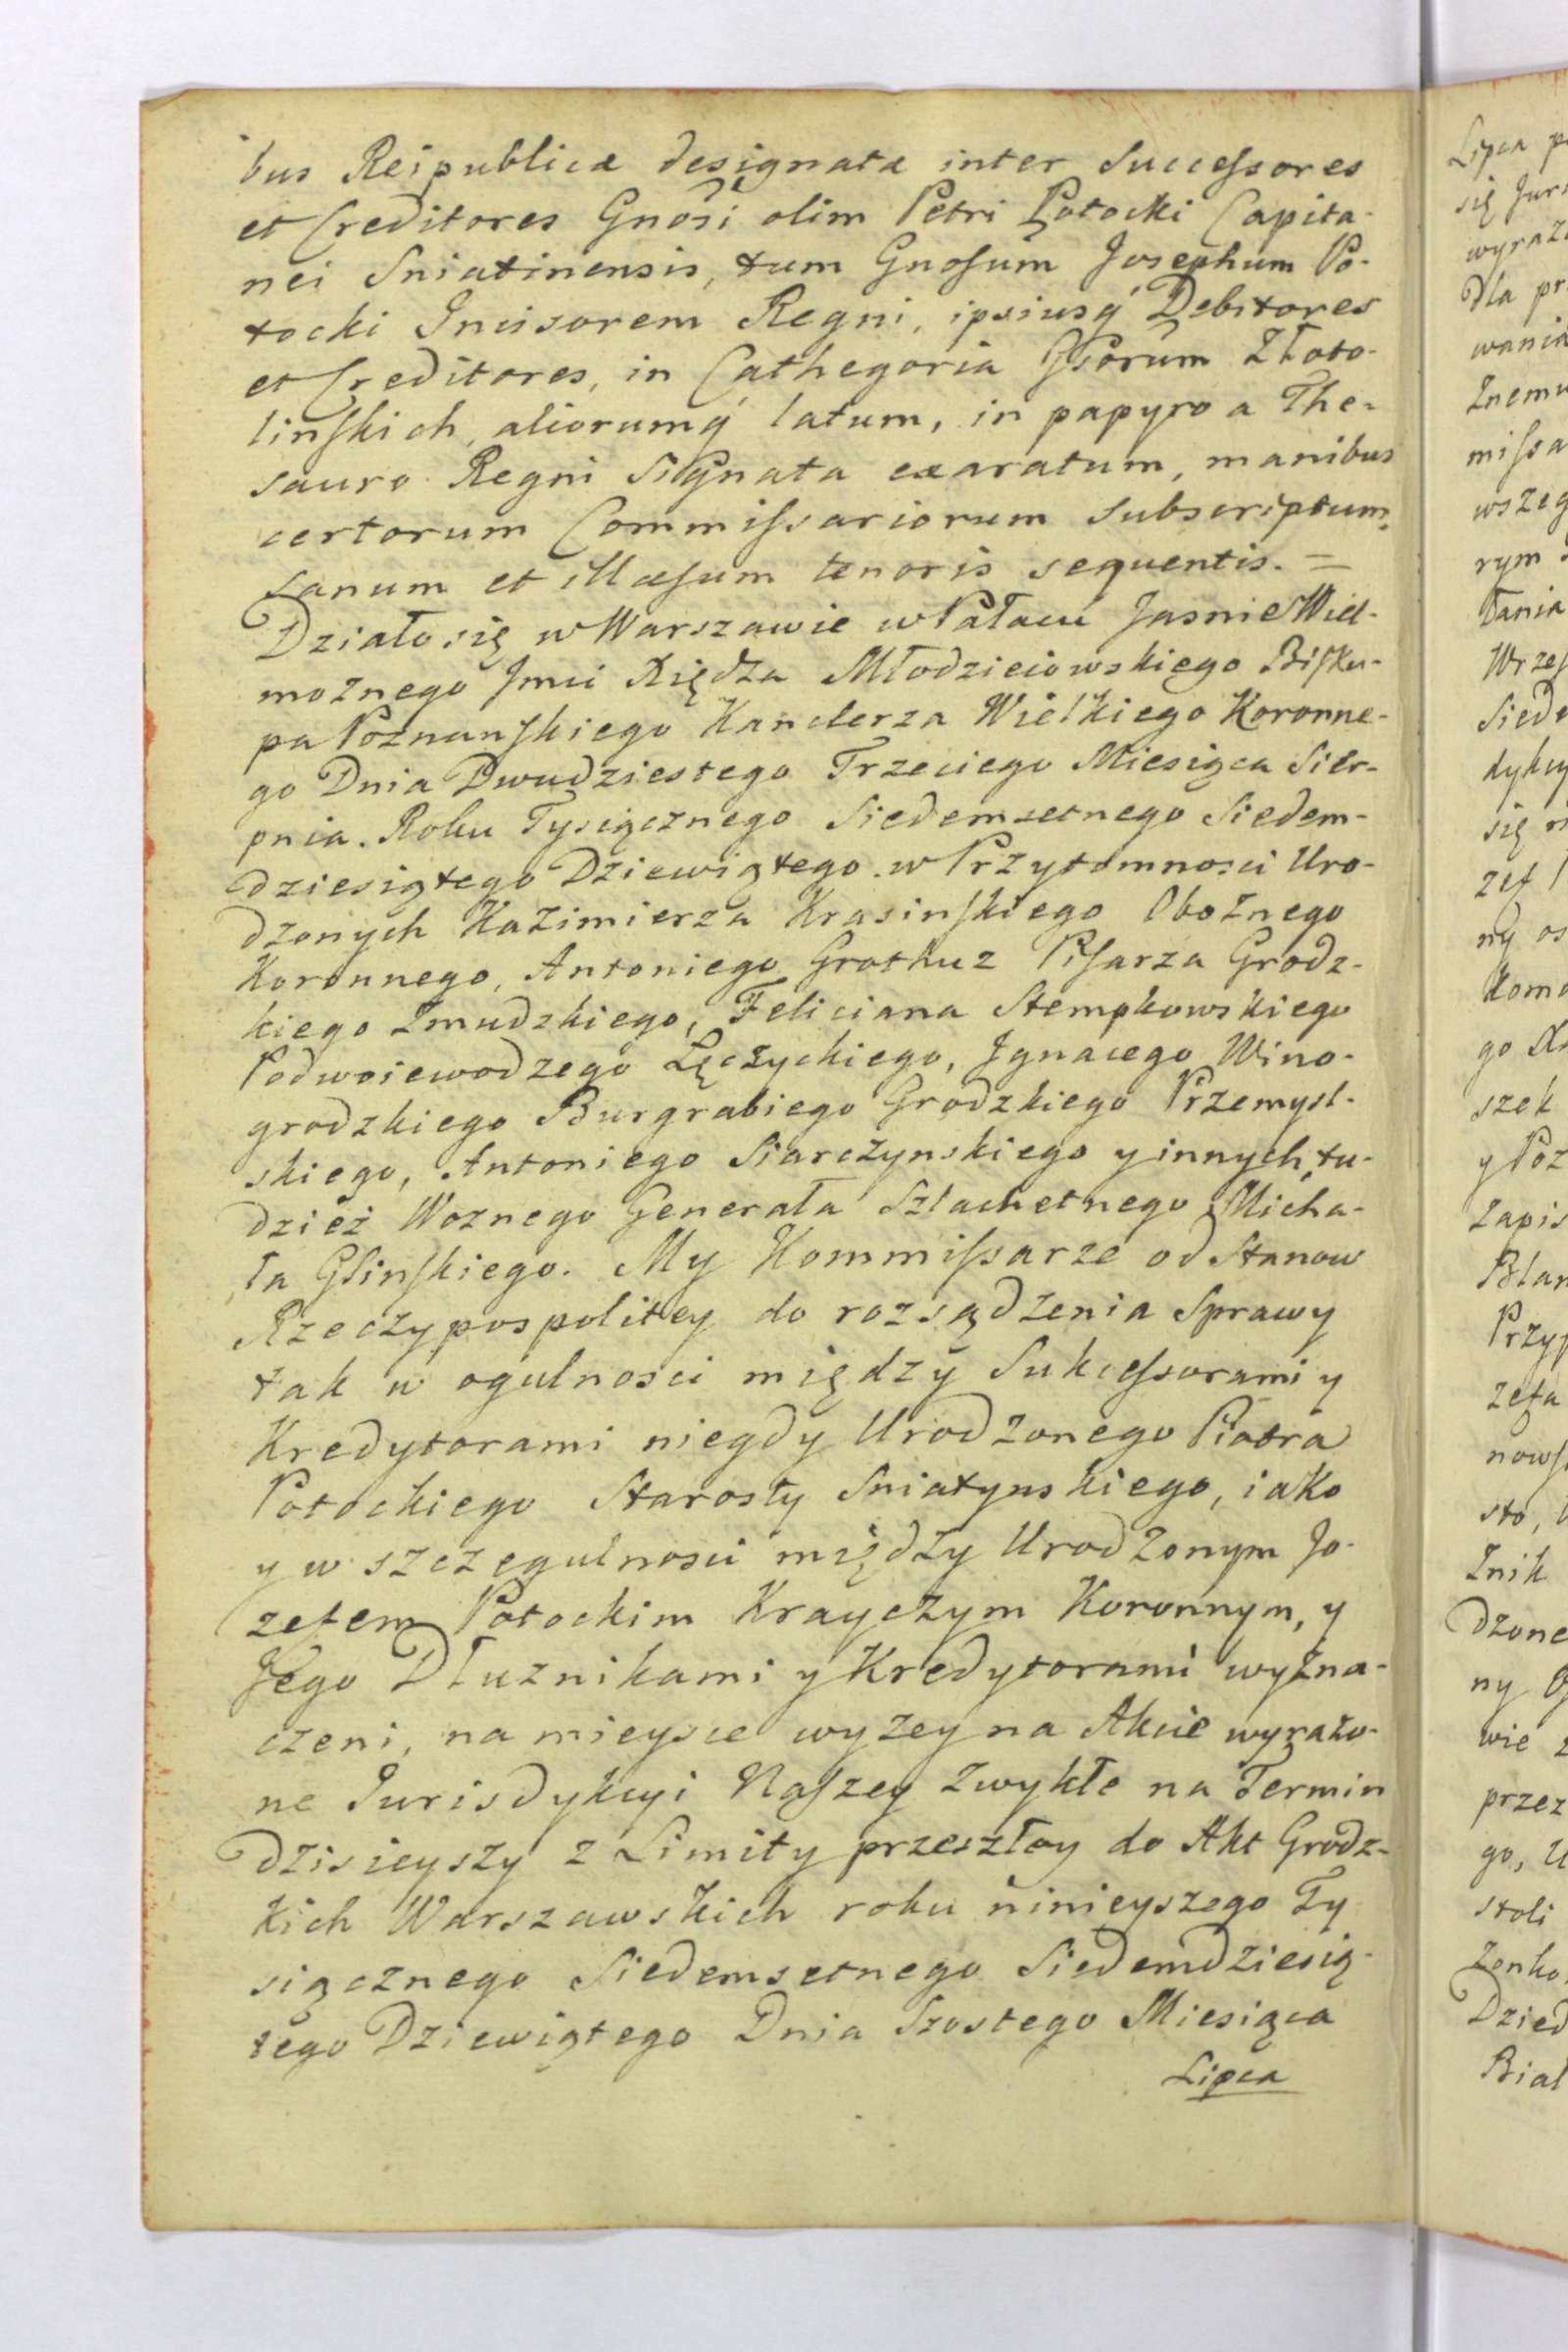 bus Reipublicæ designatæ inter Succeſsores
et Creditores Gnosi olim Petri Potocki Capita-
nei Sniatinensis, tum Gnoſum Josephum Po-
tocki Incisorem Regni, ipsiusq́ Debitores
et Creditores, in Cathegoria Gſorum Złoto-
linſkich, aliorumq́ latum, in papyro a The-
sauro Regni Signata exaratum, manibus
certorum Commiſsariorum Subscriptum,
Sanum et illæſum tenoris sequentis. =
Działo się w Warszawie w Pałacu Jasnie Wiel-
możnego Jmci Xiędza Młodzieiowskiego Biſku-
pa Poznanſkiego Kanclerza Wielkiego Koronne-
go Dnia Dwudziestego Trzeciego Miesiąca Sier-
pnia. Roku Tysiącznego Siedemsetnego Siedem-
dziesiątego Dziewiątego. w Przytomnosci Uro-
dzonych Kazimierza Krasinſkiego Oboznego
Koronnego, Antoniego Grothuz Piſarza Grodz-
kiego Zmudzkiego, Feliciana Stempkowskiego
Podwoiewodzego Łęczyckiego, Jgnacego Wino-
grodzkiego Burgrabiego Grodzkiego Przemysl-
skiego, Antoniego Siarczynskiego y innych, tu-
dzież Woznego Generała Szlachetnego Micha-
ła Glinſkiego. My Kommiſsarze od Stanow
Rzeczypospolitey do rozsądzenia Sprawy
tak w ogulnosci między Sukceſsorami y
Kredytorami niegdy Urodzonego Piotra
Potockiego Starosty Sniatynskiego, iako
y w szczegulnosci między Urodzonym Jo-
zefem Potockim Krayczym Koronnym, y
Jego Dłuznikami y Kredytorami wyzna-
czeni, na mieysce wyzey na Akcie wyrażo-
ne Jurisdykcyi Naſzey zwykłe na Termin
dzisieyszy z Limity przeszłey do Akt Grodz-
kich Warszawskich roku ninieyszego Ty
siącznego Siedemsetnego Siedemdziesią-
tego Dziewiątego Dnia Szostego Miesiąca
Lipca